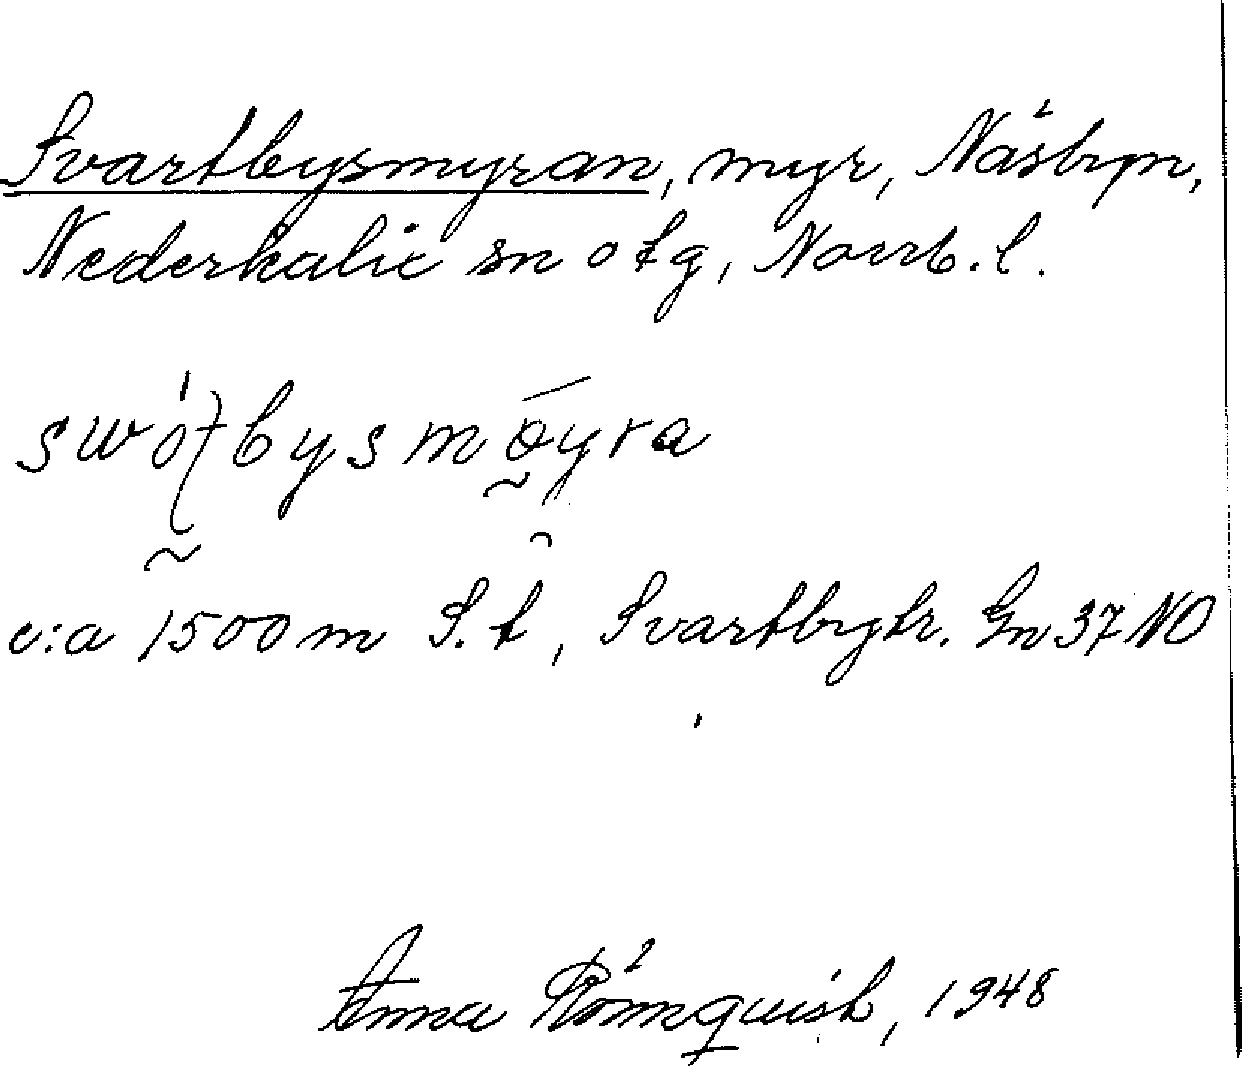 Svartbysmyran, myr, Näsbyn,
Nederkalix sn o tg, Norrb. l.
c:a 1500 m S. t, Svartbytr. Gn 37 NO
Anna Rönnquist, 1948